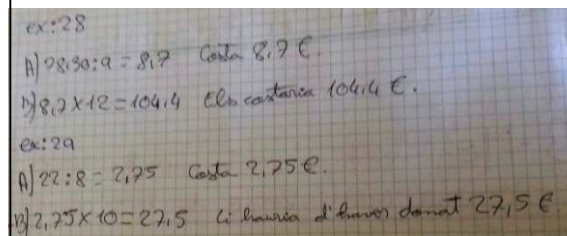 ex:28
A) 78,30:9 = 8,7 Costa 8,7 €.
B) 8,7 x 12 = 104,4 Els costaria 104,4 €.
ex:29
A) 22:8 = 2,75 Costa 2,75 €.
B) 2,75 x 10 = 27,5 Li hauria d'haver donat 27,5 €